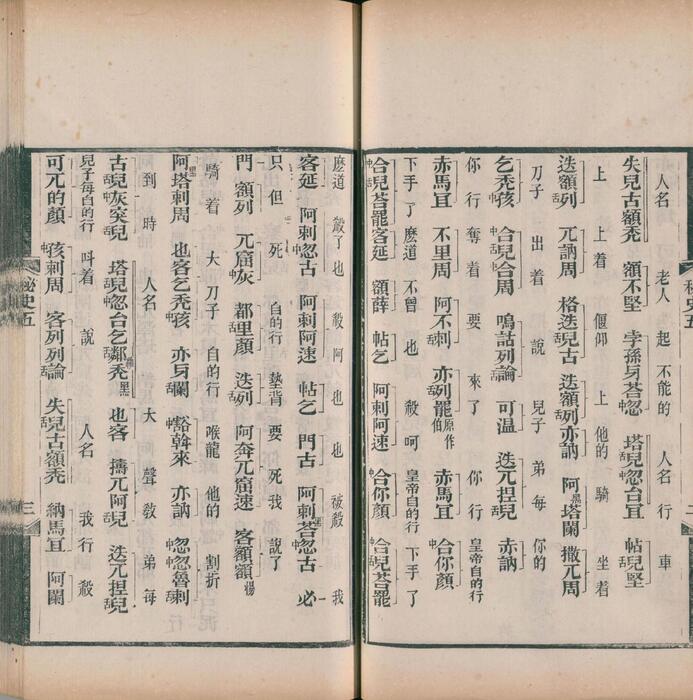 人名 老人 起 不能的 人名 行 車
失兒古額禿 額不堅 孛孫身荅惚 塔兒忽台亘 帖兒堅
上 上着 偃仰 上 他的 騎 坐着
迭額列 元訥周 格迭兒古 迭額列亦訥 阿黑塔闌 撒兀周
刀子 出着 說 兒子 弟每 你的
乞禿孩 合兒合周 嗚詁列論 可溫 迭兀捏兒 亦訥
你行 奪着 要 來了 你行 皇帝自的行
赤馬亘 不里周 阿不剌 亦列罷 原作伯 赤馬亘 合你顏
下手了 麽道 不曾 也 殺呵 皇帝自的行 下手了
合兒荅罷客延 額薛 帖乞 阿剌阿速 合你顏 合兒荅罷
麽道 殺了也 殺阿 也 也 被殺 我
客延 阿剌惚古 阿剌阿速 帖乞 門古 阿剌荅惚古 必
只但 死 自的行 墊背 要 死 我 說了
門 額列 兀窟灰 都里顏 迭列 阿奔兀窟速 客額額
騎着 大刀子 自的行 喉嚨 他的 割折
阿黑塔剌周 也客乞禿孩 亦身闌 豁斡來 亦訥 惚惚魯剌
到 時 人名 大 聲 教 弟每 行
古兒灰突兒 塔兒忽台乞鄰禿黑 也客 擣兀阿兒 迭兀捏兒
兒子每自的行 叫着 說 人名 我行 殺
可兀的顏 孩剌周 客列列論 失兒古額禿 納馬亘 阿闌
秘史五
三